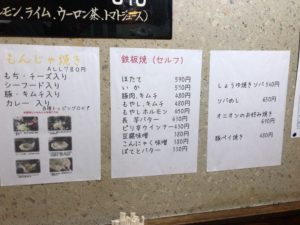 モン、ライム、ウーロン茶、トマトジュース)
もんじゃ焼き
ALL780円
もち・チーズ入り
シーフード入り
豚・キムチ入り
カレー入り
鉄板焼(セルフ)
ほたて 590円
いか 550円
豚肉、キムチ 480円
もやし、キムチ 480円
もやしホルモン 650円
長芋バター 450円
ピリ辛ウインナー 430円
豆腐味噌 380円
こんにゃく味噌 380円
ぽてとバター 350円
しょうゆ焼きソバ 560円
ソバめし 650円
オニオンのお好み焼き
690円
豚ペイ焼き 480円